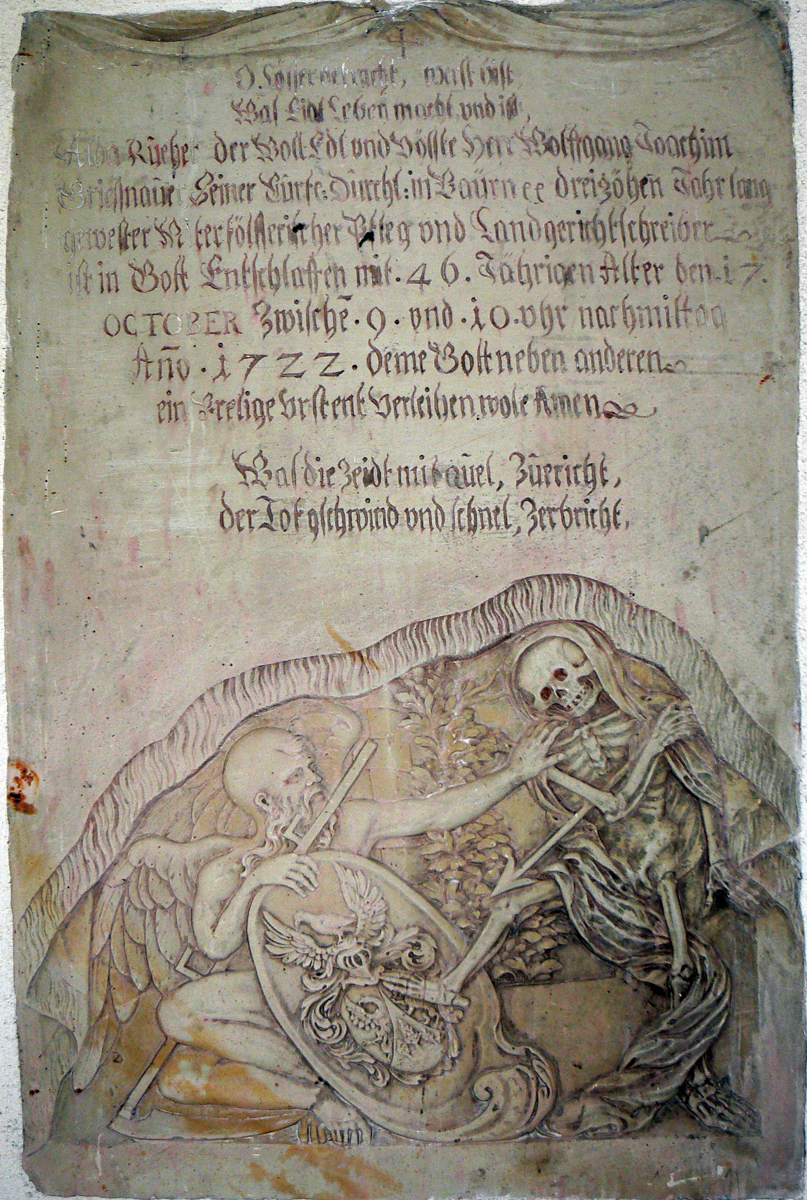 O. betracht, was bist
Was Eitl Leben macht und ist,
Alhie Ruehet der Woll Edl und Vösste Herr Wolffgang Joachim
Seiner Curfr: Durchl: in Bäÿrn ꝛc dreizöhen Jahr lang
gewester Pfleg vnd Landgerichtschreiber
ist in Gott Entschlaffen mit . 46 . Jährigen Alter den . 17 .
OCTOBER Zwischē . 9 . vnd . 10 . vhr nachmittag
Año . 1722 . deme Gott neben anderen
ein Freelige Vrstent Verleihen wole Amen
Was die Zeidt mit qŭel, Zŭericht,
der Tot gschwind vnd schnel, Zerbricht.